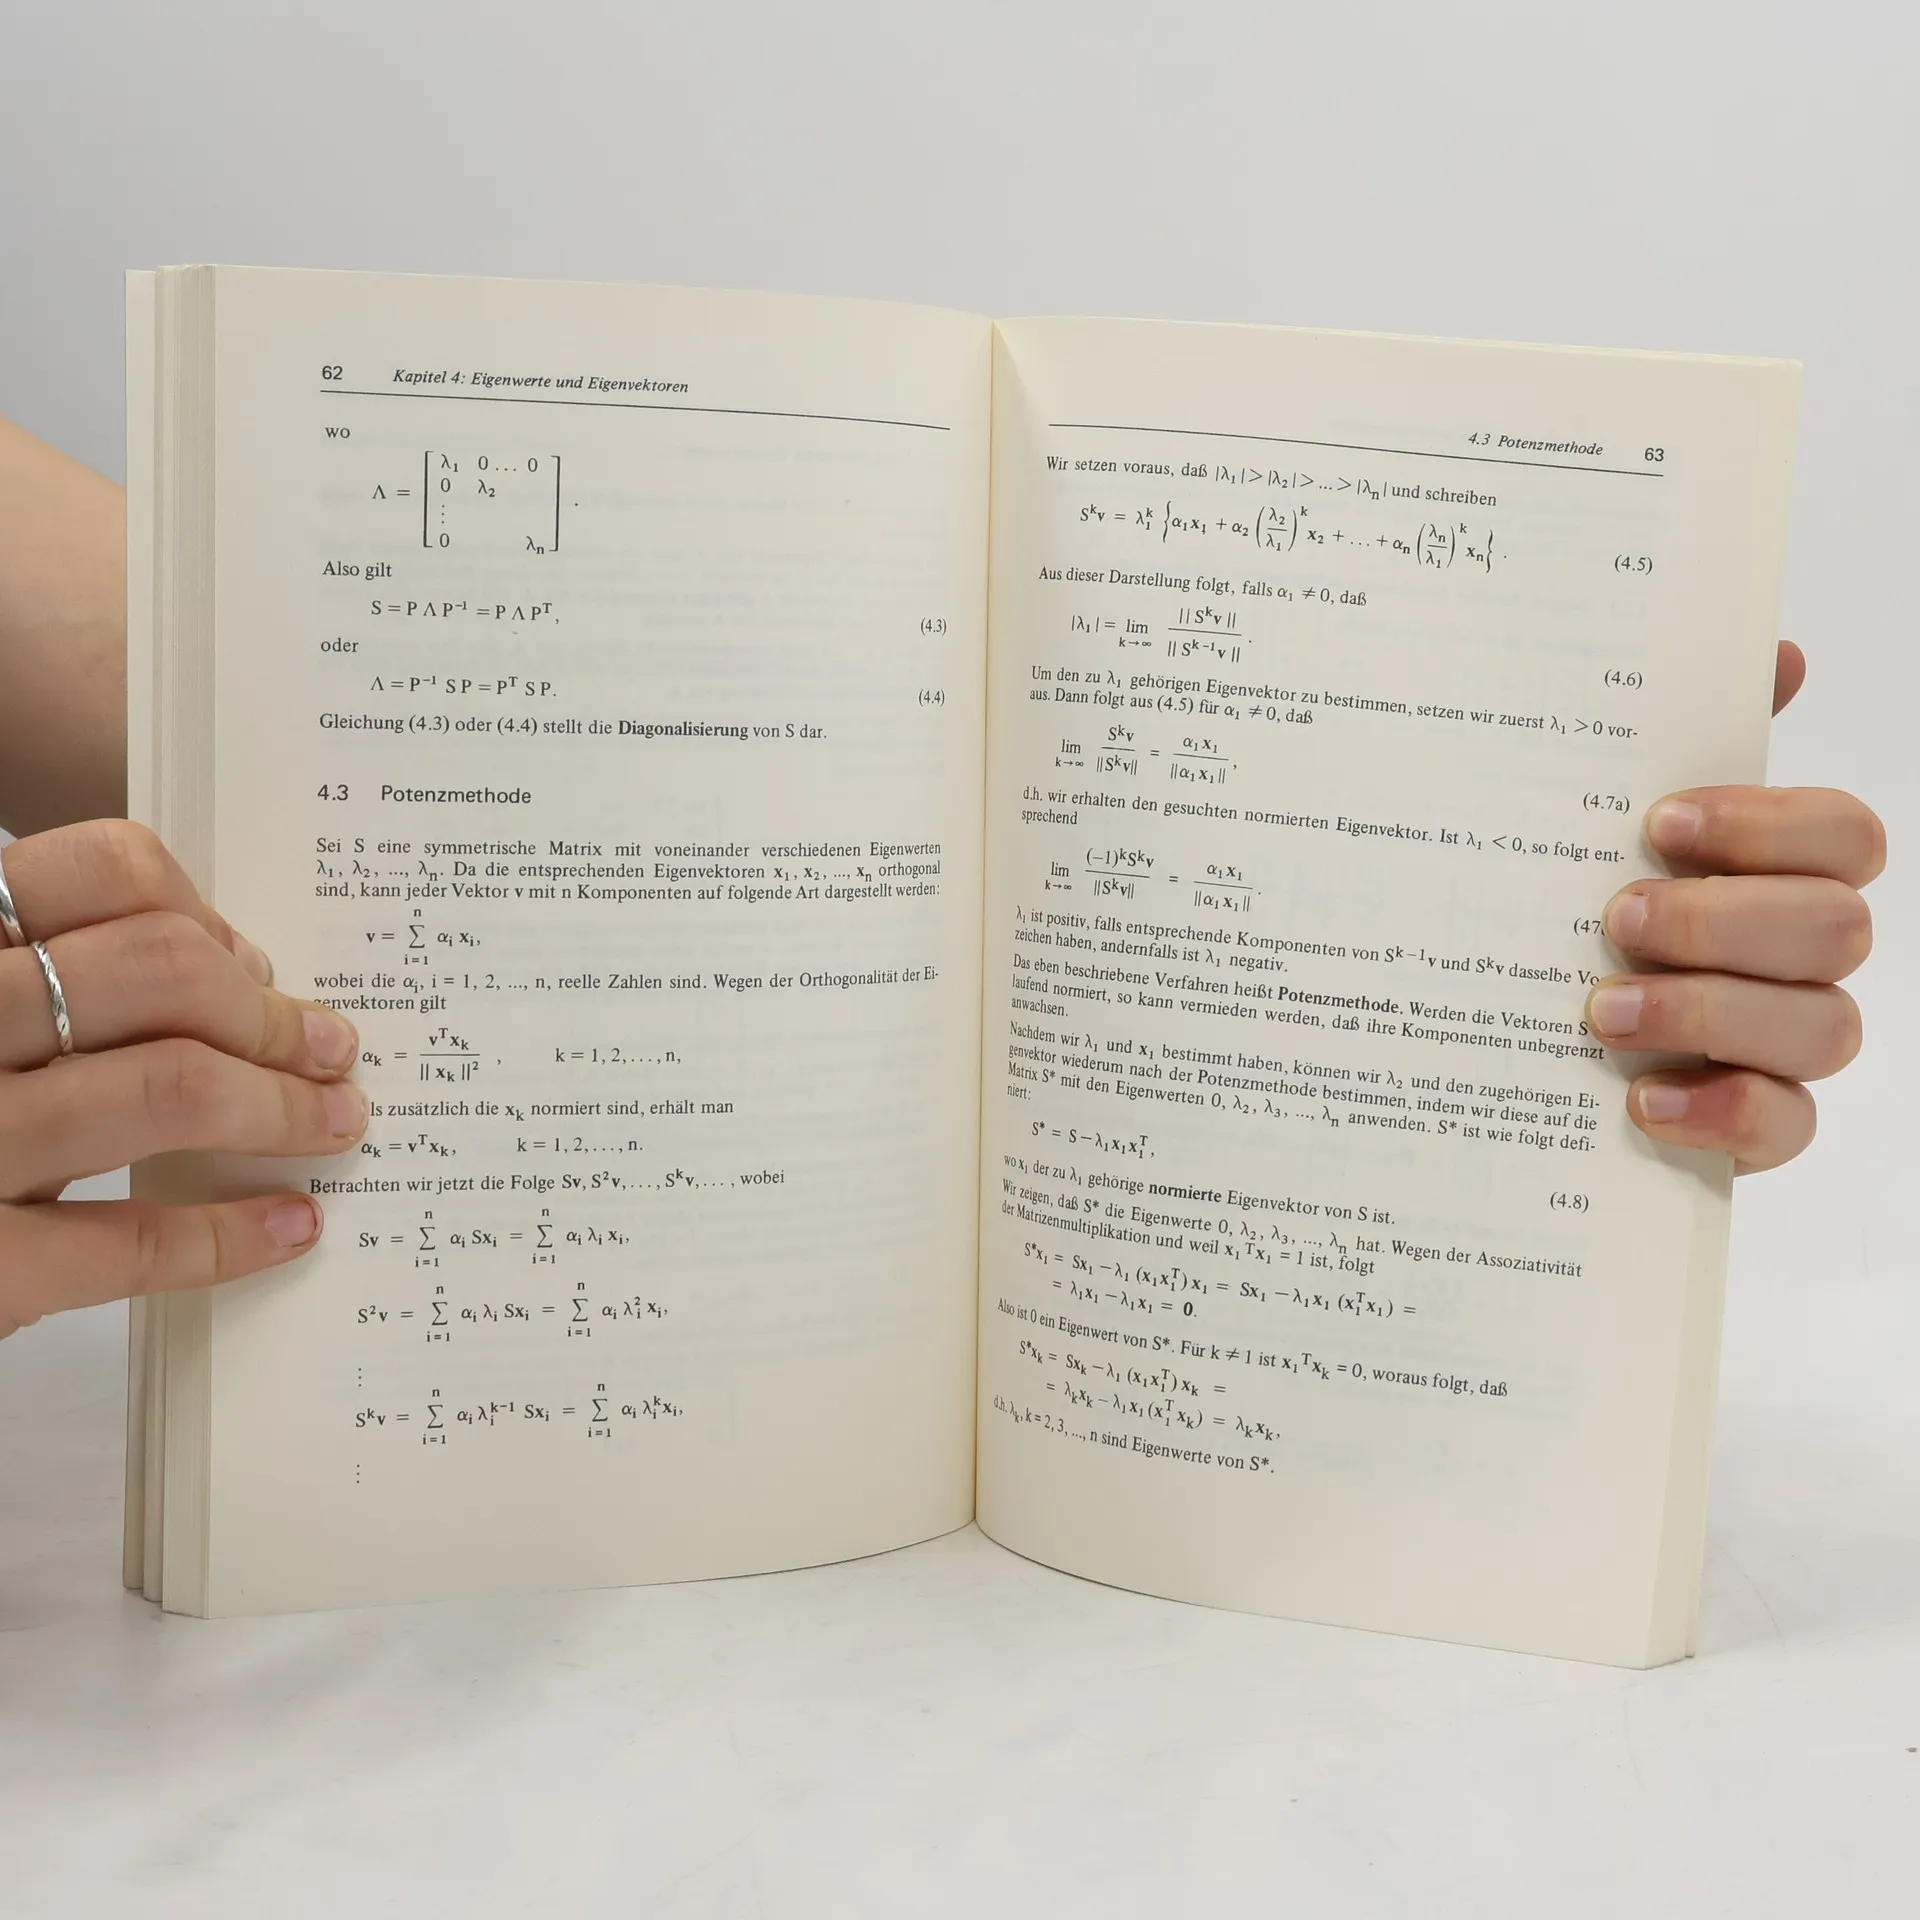 62 Kapitel 4: Eigenwerte und Eigenvektoren
wo
Λ = [ λ₁ 0 ... 0
0 λ₂
⋮
0 λₙ ] .
Also gilt
S = P Λ P⁻¹ = P Λ Pᵀ, (4.3)
oder
Λ = P⁻¹ S P = Pᵀ S P. (4.4)
Gleichung (4.3) oder (4.4) stellt die Diagonalisierung von S dar.
4.3 Potenzmethode
Sei S eine symmetrische Matrix mit voneinander verschiedenen Eigenwerten
λ₁, λ₂, ..., λₙ. Da die entsprechenden Eigenvektoren x₁, x₂, ..., xₙ orthogonal
sind, kann jeder Vektor v mit n Komponenten auf folgende Art dargestellt werden:
v = ∑_{i=1}^{n} αᵢ xᵢ,
wobei die αᵢ, i = 1, 2, ..., n, reelle Zahlen sind. Wegen der Orthogonalität der Ei-
genvektoren gilt
αₖ = vᵀxₖ / || xₖ ||² , k = 1, 2, . . . , n,
ls zusätzlich die xₖ normiert sind, erhält man
αₖ = vᵀxₖ, k = 1, 2, . . . , n.
Betrachten wir jetzt die Folge Sv, S²v, . . . , Sᵏv, . . . , wobei
Sv = ∑_{i=1}^{n} αᵢ Sxᵢ = ∑_{i=1}^{n} αᵢ λᵢ xᵢ,
S²v = ∑_{i=1}^{n} αᵢ λᵢ Sxᵢ = ∑_{i=1}^{n} αᵢ λᵢ² xᵢ,
⋮
Sᵏv = ∑_{i=1}^{n} αᵢ λᵢᵏ⁻¹ Sxᵢ = ∑_{i=1}^{n} αᵢ λᵢᵏ xᵢ,
⋮
4.3 Potenzmethode 63
Wir setzen voraus, daß |λ₁| > |λ₂| > ... > |λₙ| und schreiben
Sᵏv = λ₁ᵏ {α₁x₁ + α₂ (λ₂/λ₁)ᵏ x₂ + . . . + αₙ (λₙ/λ₁)ᵏ xₙ} . (4.5)
Aus dieser Darstellung folgt, falls α₁ ≠ 0, daß
|λ₁| = lim_{k→∞} || Sᵏv || / || Sᵏ⁻¹v || . (4.6)
Um den zu λ₁ gehörigen Eigenvektor zu bestimmen, setzen wir zuerst λ₁ > 0 vor-
aus. Dann folgt aus (4.5) für α₁ ≠ 0, daß
lim_{k→∞} Sᵏv / ||Sᵏv|| = α₁x₁ / ||α₁x₁|| , (4.7a)
d.h. wir erhalten den gesuchten normierten Eigenvektor. Ist λ₁ < 0, so folgt ent-
sprechend
lim_{k→∞} (−1)ᵏSᵏv / ||Sᵏv|| = α₁x₁ / ||α₁x₁|| . (47
λ₁ ist positiv, falls entsprechende Komponenten von Sᵏ⁻¹v und Sᵏv dasselbe Vo
zeichen haben, andernfalls ist λ₁ negativ.
Das eben beschriebene Verfahren heißt Potenzmethode. Werden die Vektoren S
laufend normiert, so kann vermieden werden, daß ihre Komponenten unbegrenzt
anwachsen.
Nachdem wir λ₁ und x₁ bestimmt haben, können wir λ₂ und den zugehörigen Ei-
genvektor wiederum nach der Potenzmethode bestimmen, indem wir diese auf die
Matrix S* mit den Eigenwerten 0, λ₂, λ₃, ..., λₙ anwenden. S* ist wie folgt defi-
niert:
S* = S − λ₁x₁x₁ᵀ, (4.8)
wo x₁ der zu λ₁ gehörige normierte Eigenvektor von S ist.
Wir zeigen, daß S* die Eigenwerte 0, λ₂, λ₃, ..., λₙ hat. Wegen der Assoziativität
der Matrizenmultiplikation und weil x₁ᵀx₁ = 1 ist, folgt
S*x₁ = Sx₁ − λ₁ (x₁x₁ᵀ) x₁ = Sx₁ − λ₁x₁ (x₁ᵀx₁) =
= λ₁x₁ − λ₁x₁ = 0.
Also ist 0 ein Eigenwert von S*. Für k ≠ 1 ist x₁ᵀxₖ = 0, woraus folgt, daß
S*xₖ = Sxₖ − λ₁ (x₁x₁ᵀ) xₖ =
= λₖxₖ − λ₁x₁ (x₁ᵀxₖ) = λₖxₖ,
d.h. λₖ, k = 2, 3, ..., n sind Eigenwerte von S*.